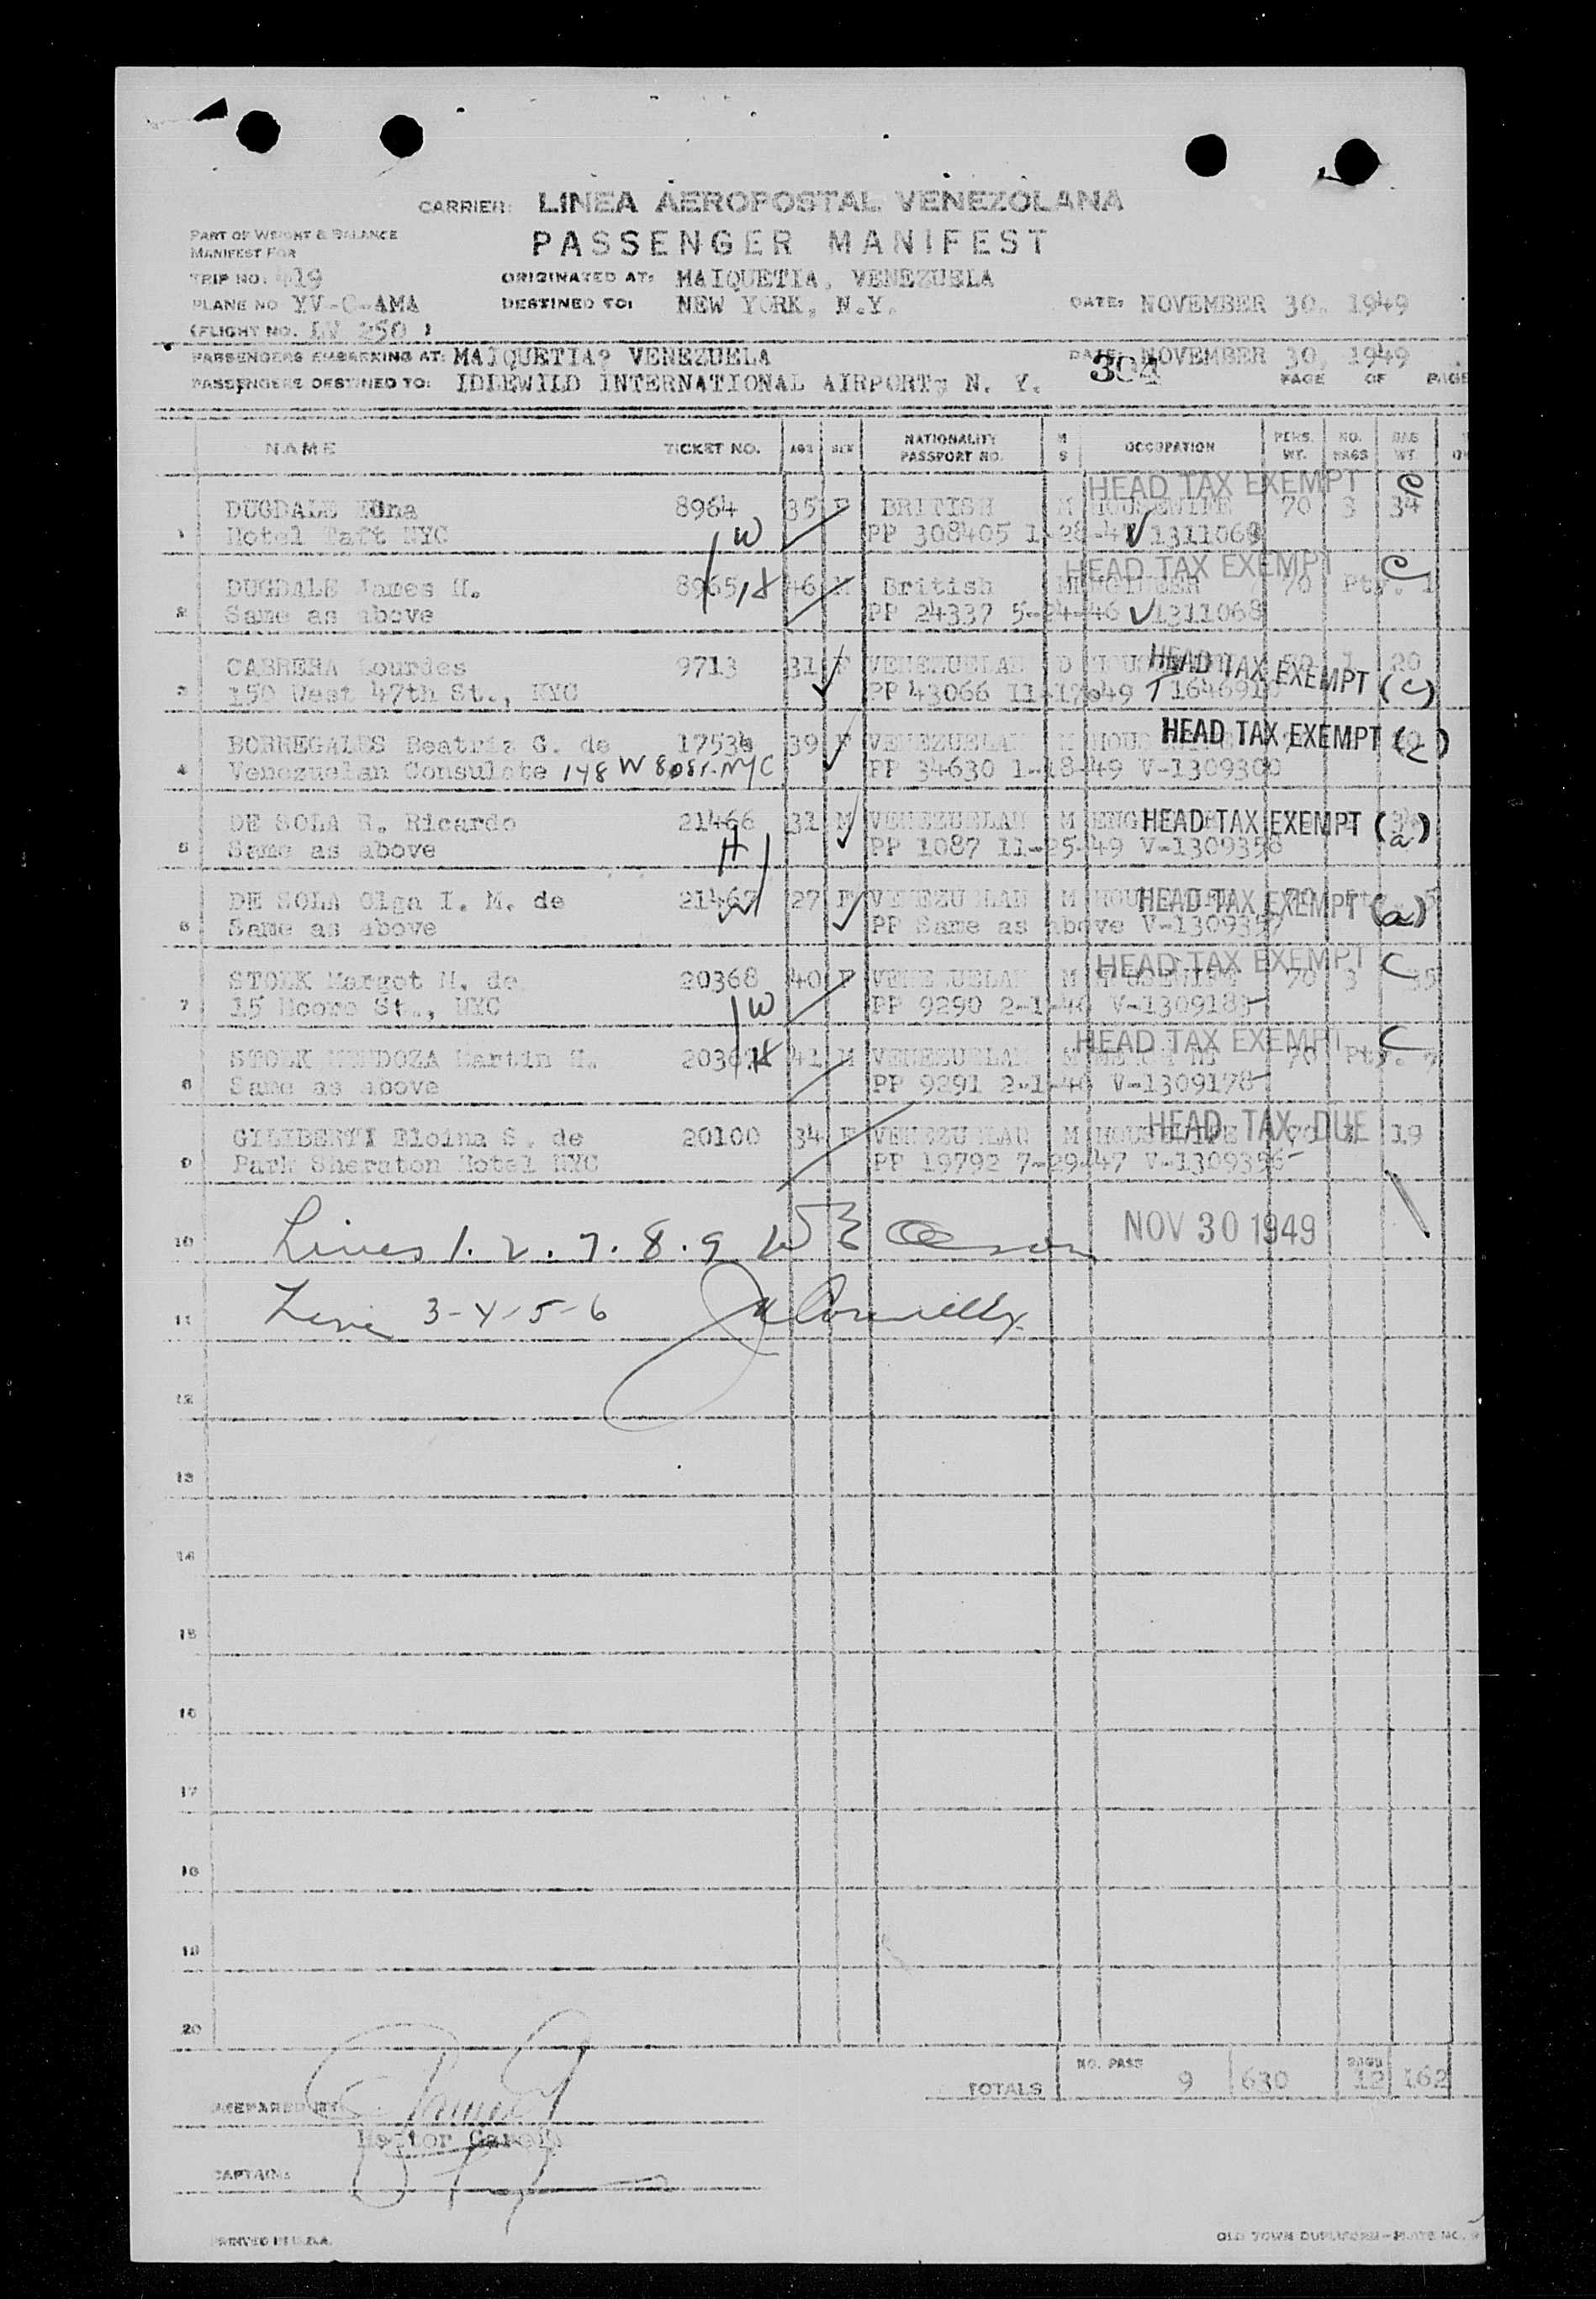 CARRIER: LINEA AEROPOSTAL VENEZOLANA
PART OF WEIGHT & BALANCE
MANIFEST FOR
PASSENGER MANIFEST
TRIP NO: 419 ORIGINATED AT: MAIQUETIA, VENEZUELA
PLANE NO YV-C-AMA DESTINED TO: NEW YORK, N.Y. DATE: NOVEMBER 30, 1949
(FLIGHT NO. LV 250)
PASSENGERS EMBARKING AT: MAIQUETIA? VENEZUELA DATE: NOVEMBER 30, 1949
304
PASSENGERS DESTINED TO: IDLEWILD INTERNATIONAL AIRPORT, N. Y. PAGE OF PAGE
NAME TICKET NO. AGE SEX NATIONALITY PASSPORT NO. M S OCCUPATION PERS. WT. NO. BAGS BAG WT.
HEAD TAX EXEMPT C
DUGDALE Edna 8964 35 F BRITISH M HOUSEWIFE 70 3 34
1 Hotel Taft NYC W PP 308405 1-28-4 1311069
HEAD TAX EXEMPT C
DUGDALE James H. 8965 H 46 M British M ENGINEER 70 Pty. 1
2 Same as above PP 24337 5-24-46 1311068
CABRERA Lourdes 9713 31 F VENEZUELAN D HEAD TAX EXEMPT (C) 1 20
3 150 West 47th St., NYC PP 43066 11-17-49 T 164691
BORREGALES Beatriz G. de 1753 39 F VENEZUELAN M HEAD TAX EXEMPT (C)
4 Venezuelan Consulate 148 W 80 St. NYC PP 34630 1-18-49 V-1309300
DE SOLA R. Ricardo 21466 31 M VENEZUELAN M ENG HEAD TAX EXEMPT (a)
5 Same as above H PP 1087 11-25-49 V-1309358
DE SOLA Olga I. M. de 21467 27 F VENEZUELAN M HEAD TAX EXEMPT (a)
6 Same as above W PP Same as above V-1309357
HEAD TAX EXEMPT C
STOLK Margot N. de 20368 40 F VENEZUELAN M HOUSEWIFE 70 3 35
7 15 Moore St., NYC W PP 9290 2-1-46 V-1309183
HEAD TAX EXEMPT C
STOLK MENDOZA Martin H. 20367 H 41 M VENEZUELAN M 70 Pty. 7
8 Same as above PP 9291 2-1-46 V-1309178
HEAD TAX DUE
GILIBERTI Eloina S. de 20100 34 F VENEZUELAN M HOUSEWIFE 70 1 19
9 Park Sheraton Hotel NYC PP 19792 7-29-47 V-1309356
10 Lines 1. 2. 7. 8. 9 NOV 30 1949
11 Line 3-4-5-6 Connelly
12
13
14
15
16
17
18
19
20
TOTALS NO. PASS 9 630 BAGS 12 162
PREPARED BY:
Hector
CAPTAIN:
PRINTED IN U.S.A. OLD TOWN DUPLIFORM-PLATE NO.